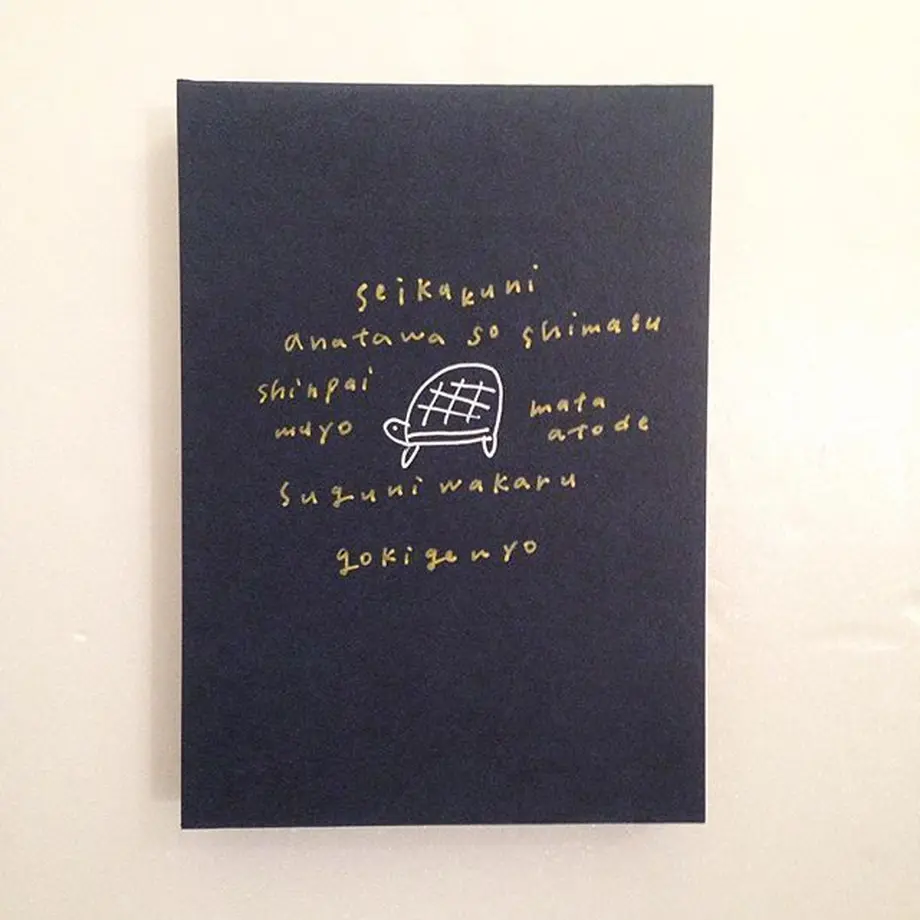 seikakuni
anatawa so shimasu
shinpai
muyo
mata
atode
suguni wakaru
gokigenyo